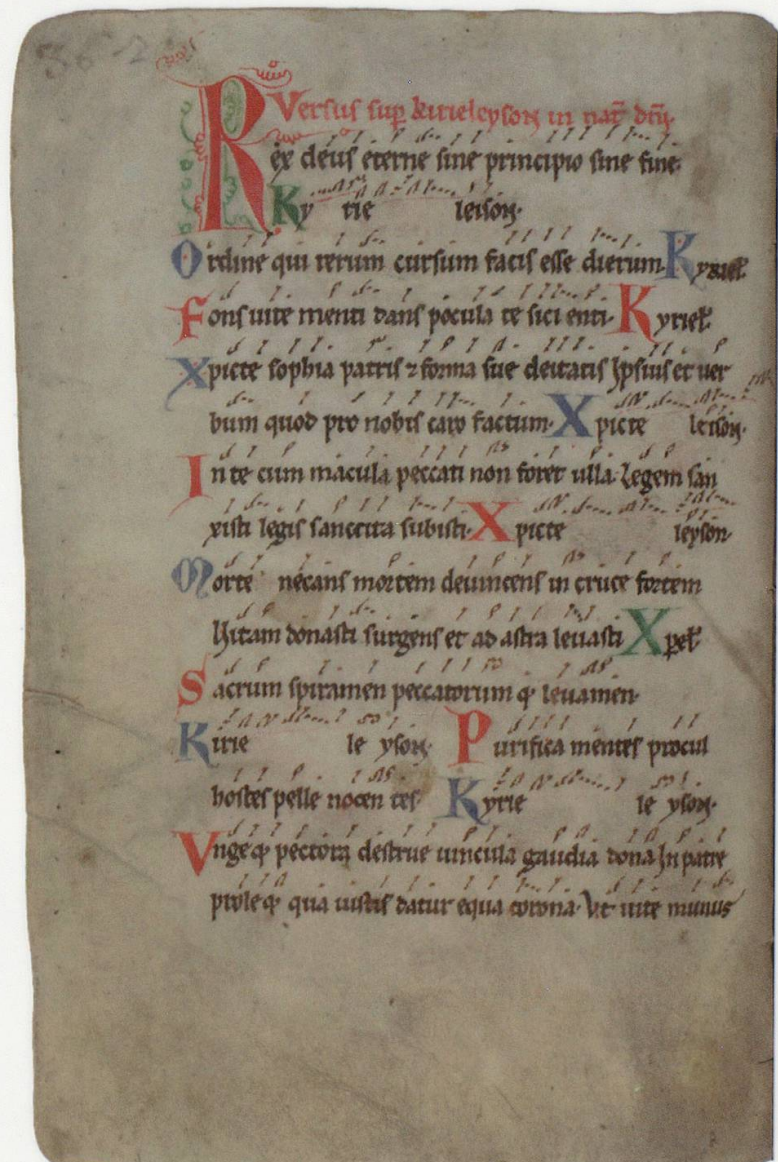 Versus sup kirieleyson in nat dni.
Rex deus eterne sine principio sine fine.
Ky rie leison.
Ordine qui rerum cursum facis esse dierum. Kyriel
Fons uite menti dans pocula te sici enti. Kyriel.
Xpicte sophia patris ⁊ forma sue deitatis Ipsius et uer
bum quod pro nobis caro factum. Xpicte leison.
In te cum macula peccati non foret ulla. Legem san
xisti legis sanccita subisti. Xpicte leyson.
Morte necans mortem deuincens in cruce fortem
Uitam donasti surgens et ad astra leuasti Xpel
Sacrum spiramen peccatorum q leuamen.
Kirie le yson. Purifica mentes procul
hostes pelle nocen tes. Kyrie le yson.
Vngeq pectora destrue uincula gaudia dona In patre
proleq qua iustis datur equa corona. Vt uite munus